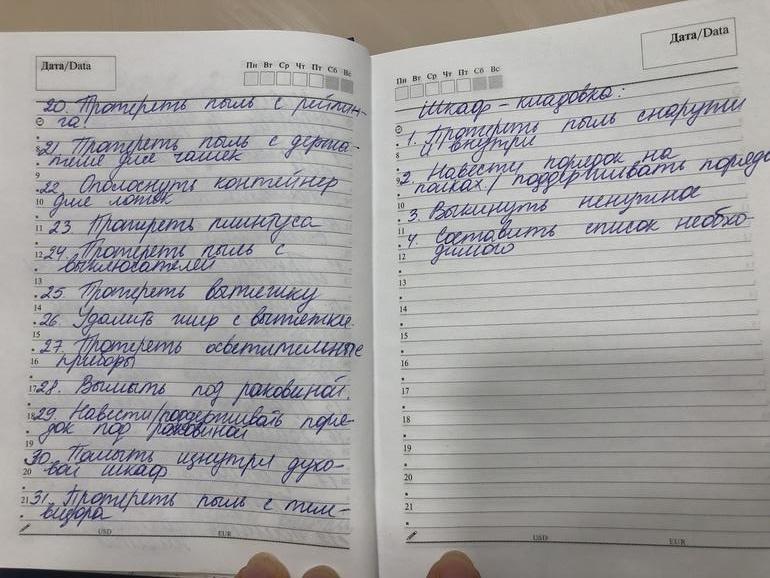 Дата/Data
Пн Вт Ср Чт Пт Сб Вс
20. Протереть пыль с рейлин-
га!
21. Протереть пыль с держа-
теля для чашек
22. Ополоснуть контейнер
для ложек
23. Протереть плинтуса
24. Протереть пыль с
выключателей
25. Протереть вытяжку
26. Удалить жир с вытяжки.
27. Протереть осветительные
приборы
28. Вымыть под раковиной.
29. Навести/поддерживать поря-
док под раковиной
30. Помыть изнутри духо-
вой шкаф
31. Протереть пыль с теле-
визора
8
9
10
11
12
13
14
15
16
17
18
19
20
21
USD EUR
Дата/Data
Пн Вт Ср Чт Пт Сб Вс
Шкаф-кладовка:
1. Протереть пыль снаружи
и внутри
2. Навести порядок на
полках / поддерживать порядо
3. Выкинуть ненужное
4. Составить список необхо-
димого
8
9
10
11
12
13
14
15
16
17
18
19
20
21
USD EUR